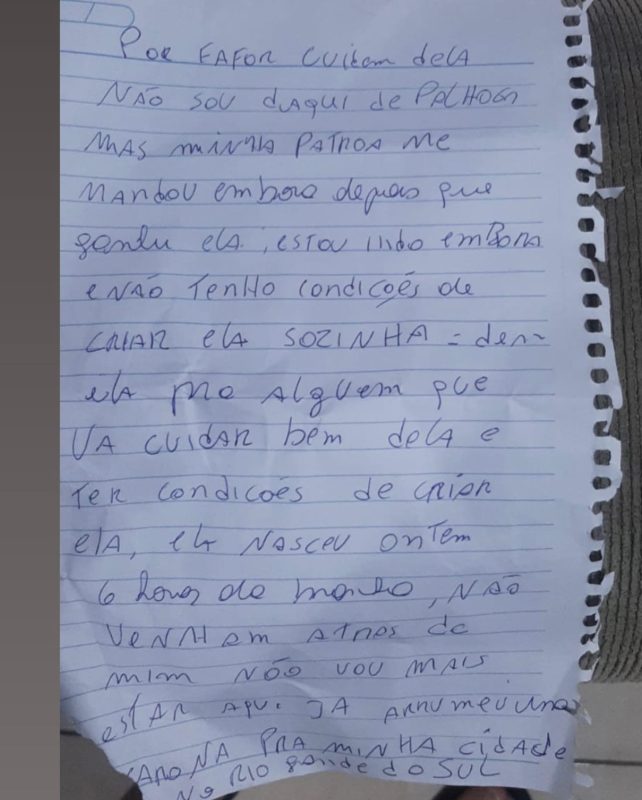 Por FAFOR cuidem dela
NÃO SOU dAQUI de PALHOÇA
MAS MINHA PATROA ME
MANdOU embora depois que
ganhei ela, ESTOU indo emBORA
e NÃO TENHO condições de
CRIAR ela SOZINHA = deem
ela pro alguem que
VA CUIDAR bem dela e
TER condicões de criar
ela, ela NASCEU ontem
6 horas da manha, NÃO
VENHAM ATRAS de
MIM NÃO VOU MAIS
ESTAR AQUI JA ARRUMEI UMA
CARONA PRA MINHA CIDADE
NO RIO gande do SUL